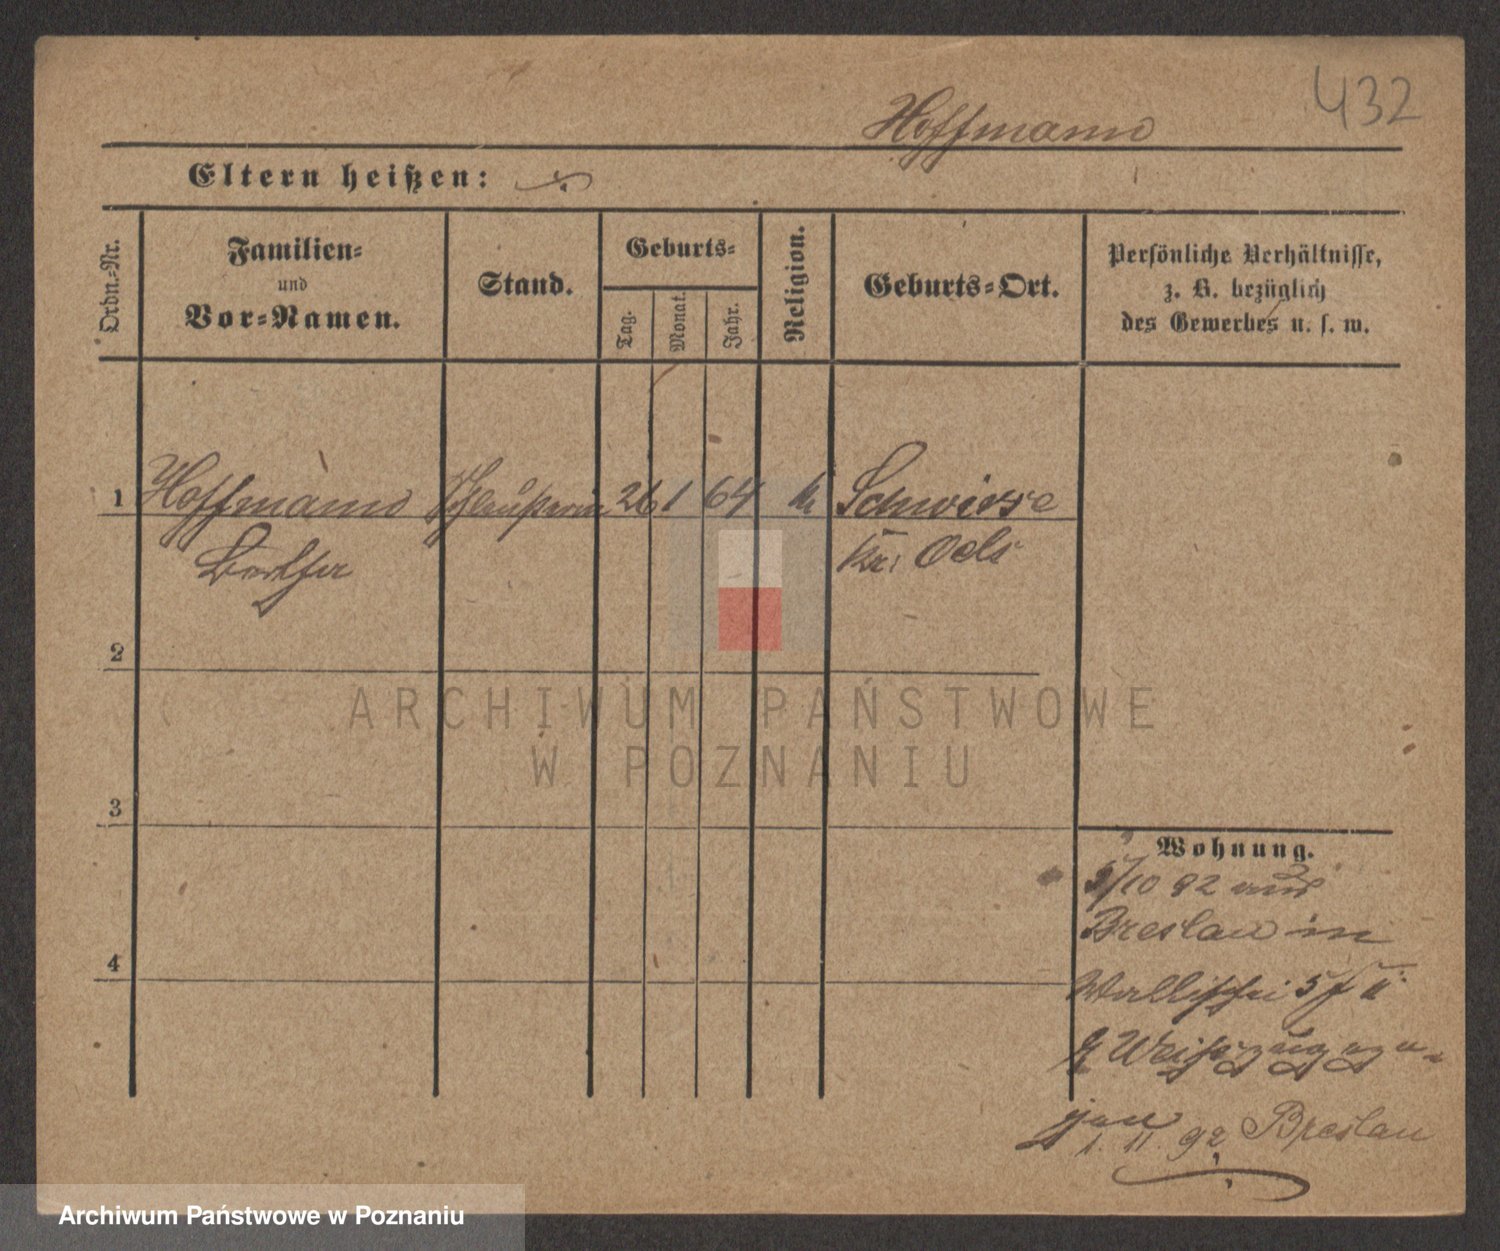 432
Hoffmann
Eltern heißen:
Ordn.=Nr.
Familien=
und
Vor=Namen.
Stand.
Geburts=
Tag.
Monat.
Jahr.
Religion.
Geburts=Ort.
Persönliche Verhältnisse,
z. B. bezüglich
des Gewerbes u. s. w.
1 Hoffmann 26 1 64 k Schwierse
Bertha Kr. Oels
2
ARCHIWUM PAŃSTWOWE
W POZNANIU
3
Wohnung.
5/10 92 aus
Breslau in
4
Wallischei 5/ II
1. 11. 92 Breslau
Archiwum Państwowe w Poznaniu